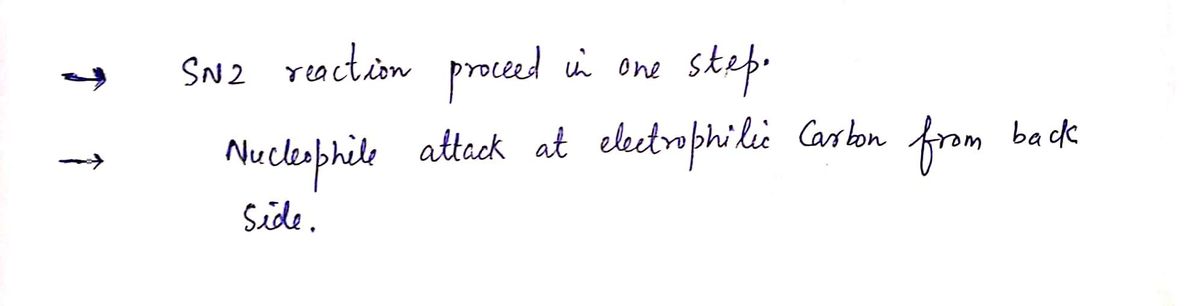 → SN2 reaction proceed in one step.
→ Nucleophile attack at electrophilic Carbon from back
side.